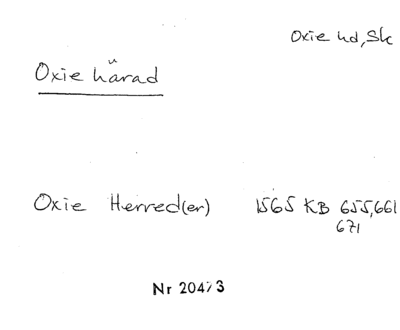 Oxie hd, Sk
Oxie härad
Oxie Herred(er) 1565 KB 655, 661
671
Nr 20473